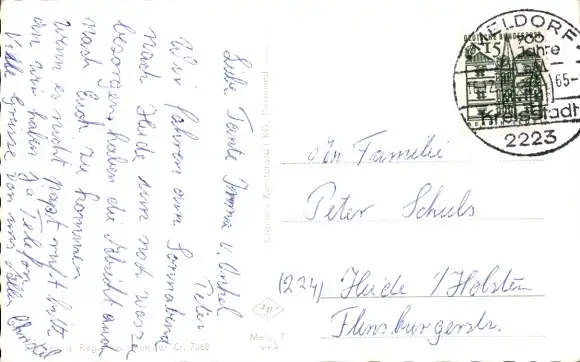 Liebe Tante Imma u. Onkel
Peter
Wir fahren am Sonnabend
nach Heide um was zu
besorgen haben die Absicht auch
nach Euch zu kommen
wenn es nicht paßt ruft bitte
an wir haben ja Telefon
Viele Grüße von uns Allen
MELDORF
700
Jahre
DEUTSCHE BUNDESPOST
15
65-
Kreisstadt
2223
An Familie
Peter Schuls
(224) Heide i/Holstein
Flensburgerstr.